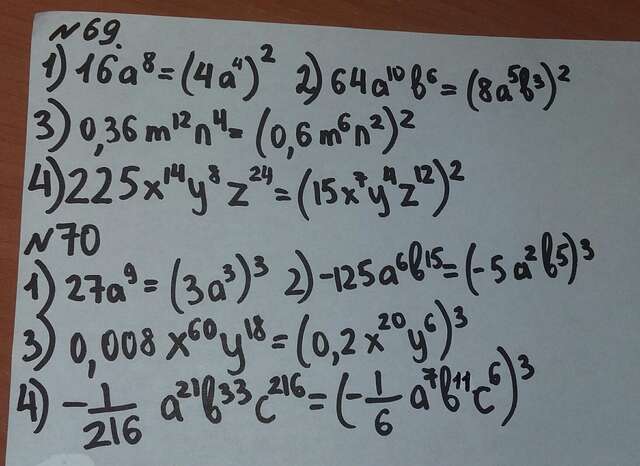 №69.
1) 16a⁸=(4a⁴)² 2) 64a¹⁰b⁶=(8a⁵b³)²
3) 0,36m¹²n⁴=(0,6m⁶n²)²
4) 225x¹⁴y⁸z²⁴=(15x⁷y⁴z¹²)²
№70
1) 27a⁹=(3a³)³ 2) -125a⁶b¹⁵=(-5a²b⁵)³
3) 0,008x⁶⁰y¹⁸=(0,2x²⁰y⁶)³
4) -1/216 a²¹b³³c²¹⁶=(-1/6 a⁷b¹¹c⁶)³